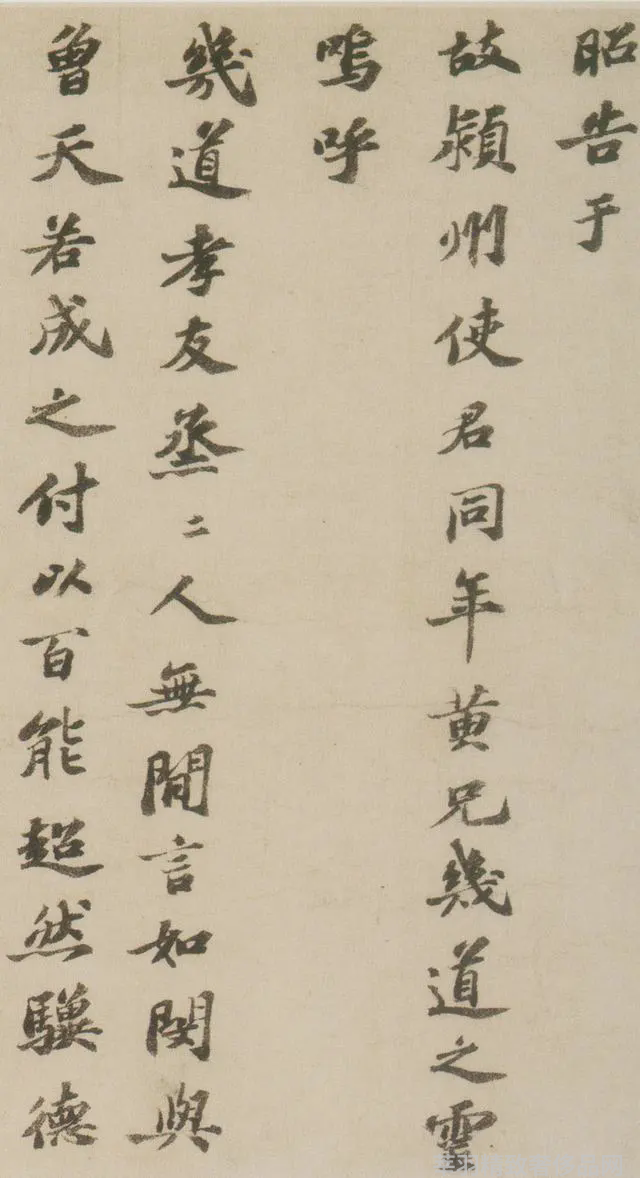 昭告于
故潁州使君同年黃兄幾道之靈
嗚呼
幾道孝友烝二人無間言如閔與
曾天若成之付以百能超然驥德